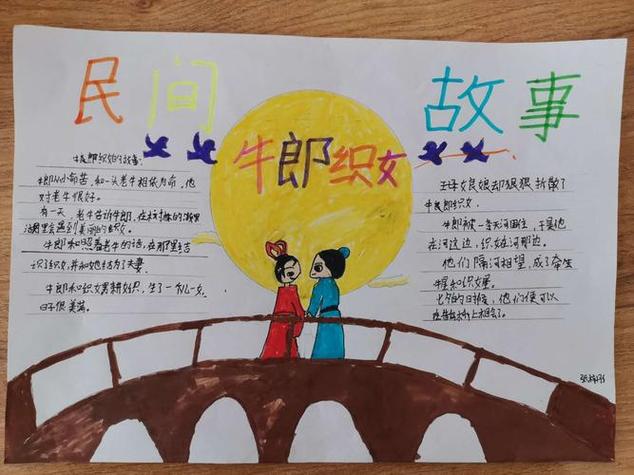 民间故事
牛郎织女
牛郎织女的故事
牛郎从小命苦，和一头老牛相依为命，他
对老牛很好。
有一天，老牛告诉牛郎，在村东的
湖里会遇到美丽的织女。
牛郎和照着老牛的话，在那里结
识了织女，并和她结为了夫妻
牛郎和织女男耕女织，生了一个儿一女
日子很美满。
王母娘娘却狠狠拆散了
牛郎织女，
牛郎被一条天河围住，于是他
在河这边，织女在河那边。
他们隔河相望，成了牵牛
星和织女星。
七夕的日子，他们便可以
在鹊桥上相会了。